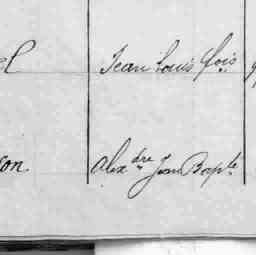 Jean Louis fois
Alexdre Jean Bapte